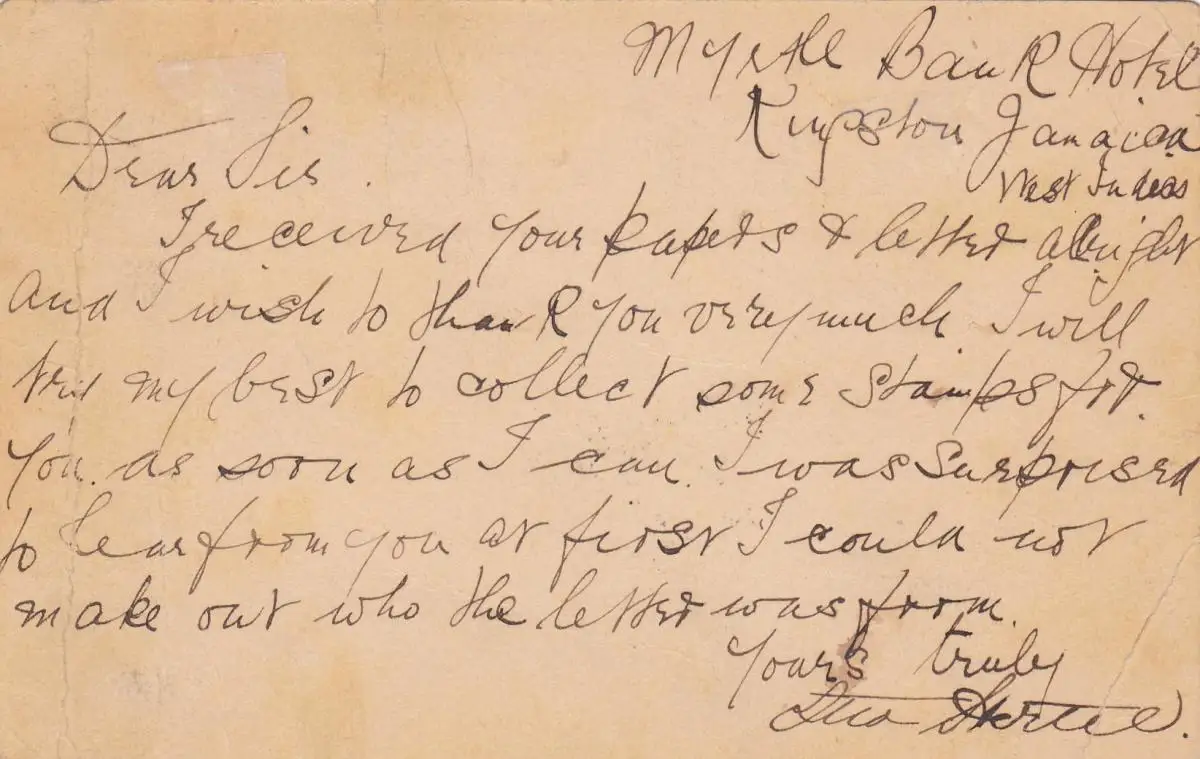 Myrtle Bank Hotel
Kingston Jamaica
West Indies
Dear Sir.
I received your papers & letter allright
and I wish to thank you very much I will
try my best to collect some stamps for
you as soon as I can. I was surprised
to hear from you at first I could not
make out who the letter was from.
Yours truly